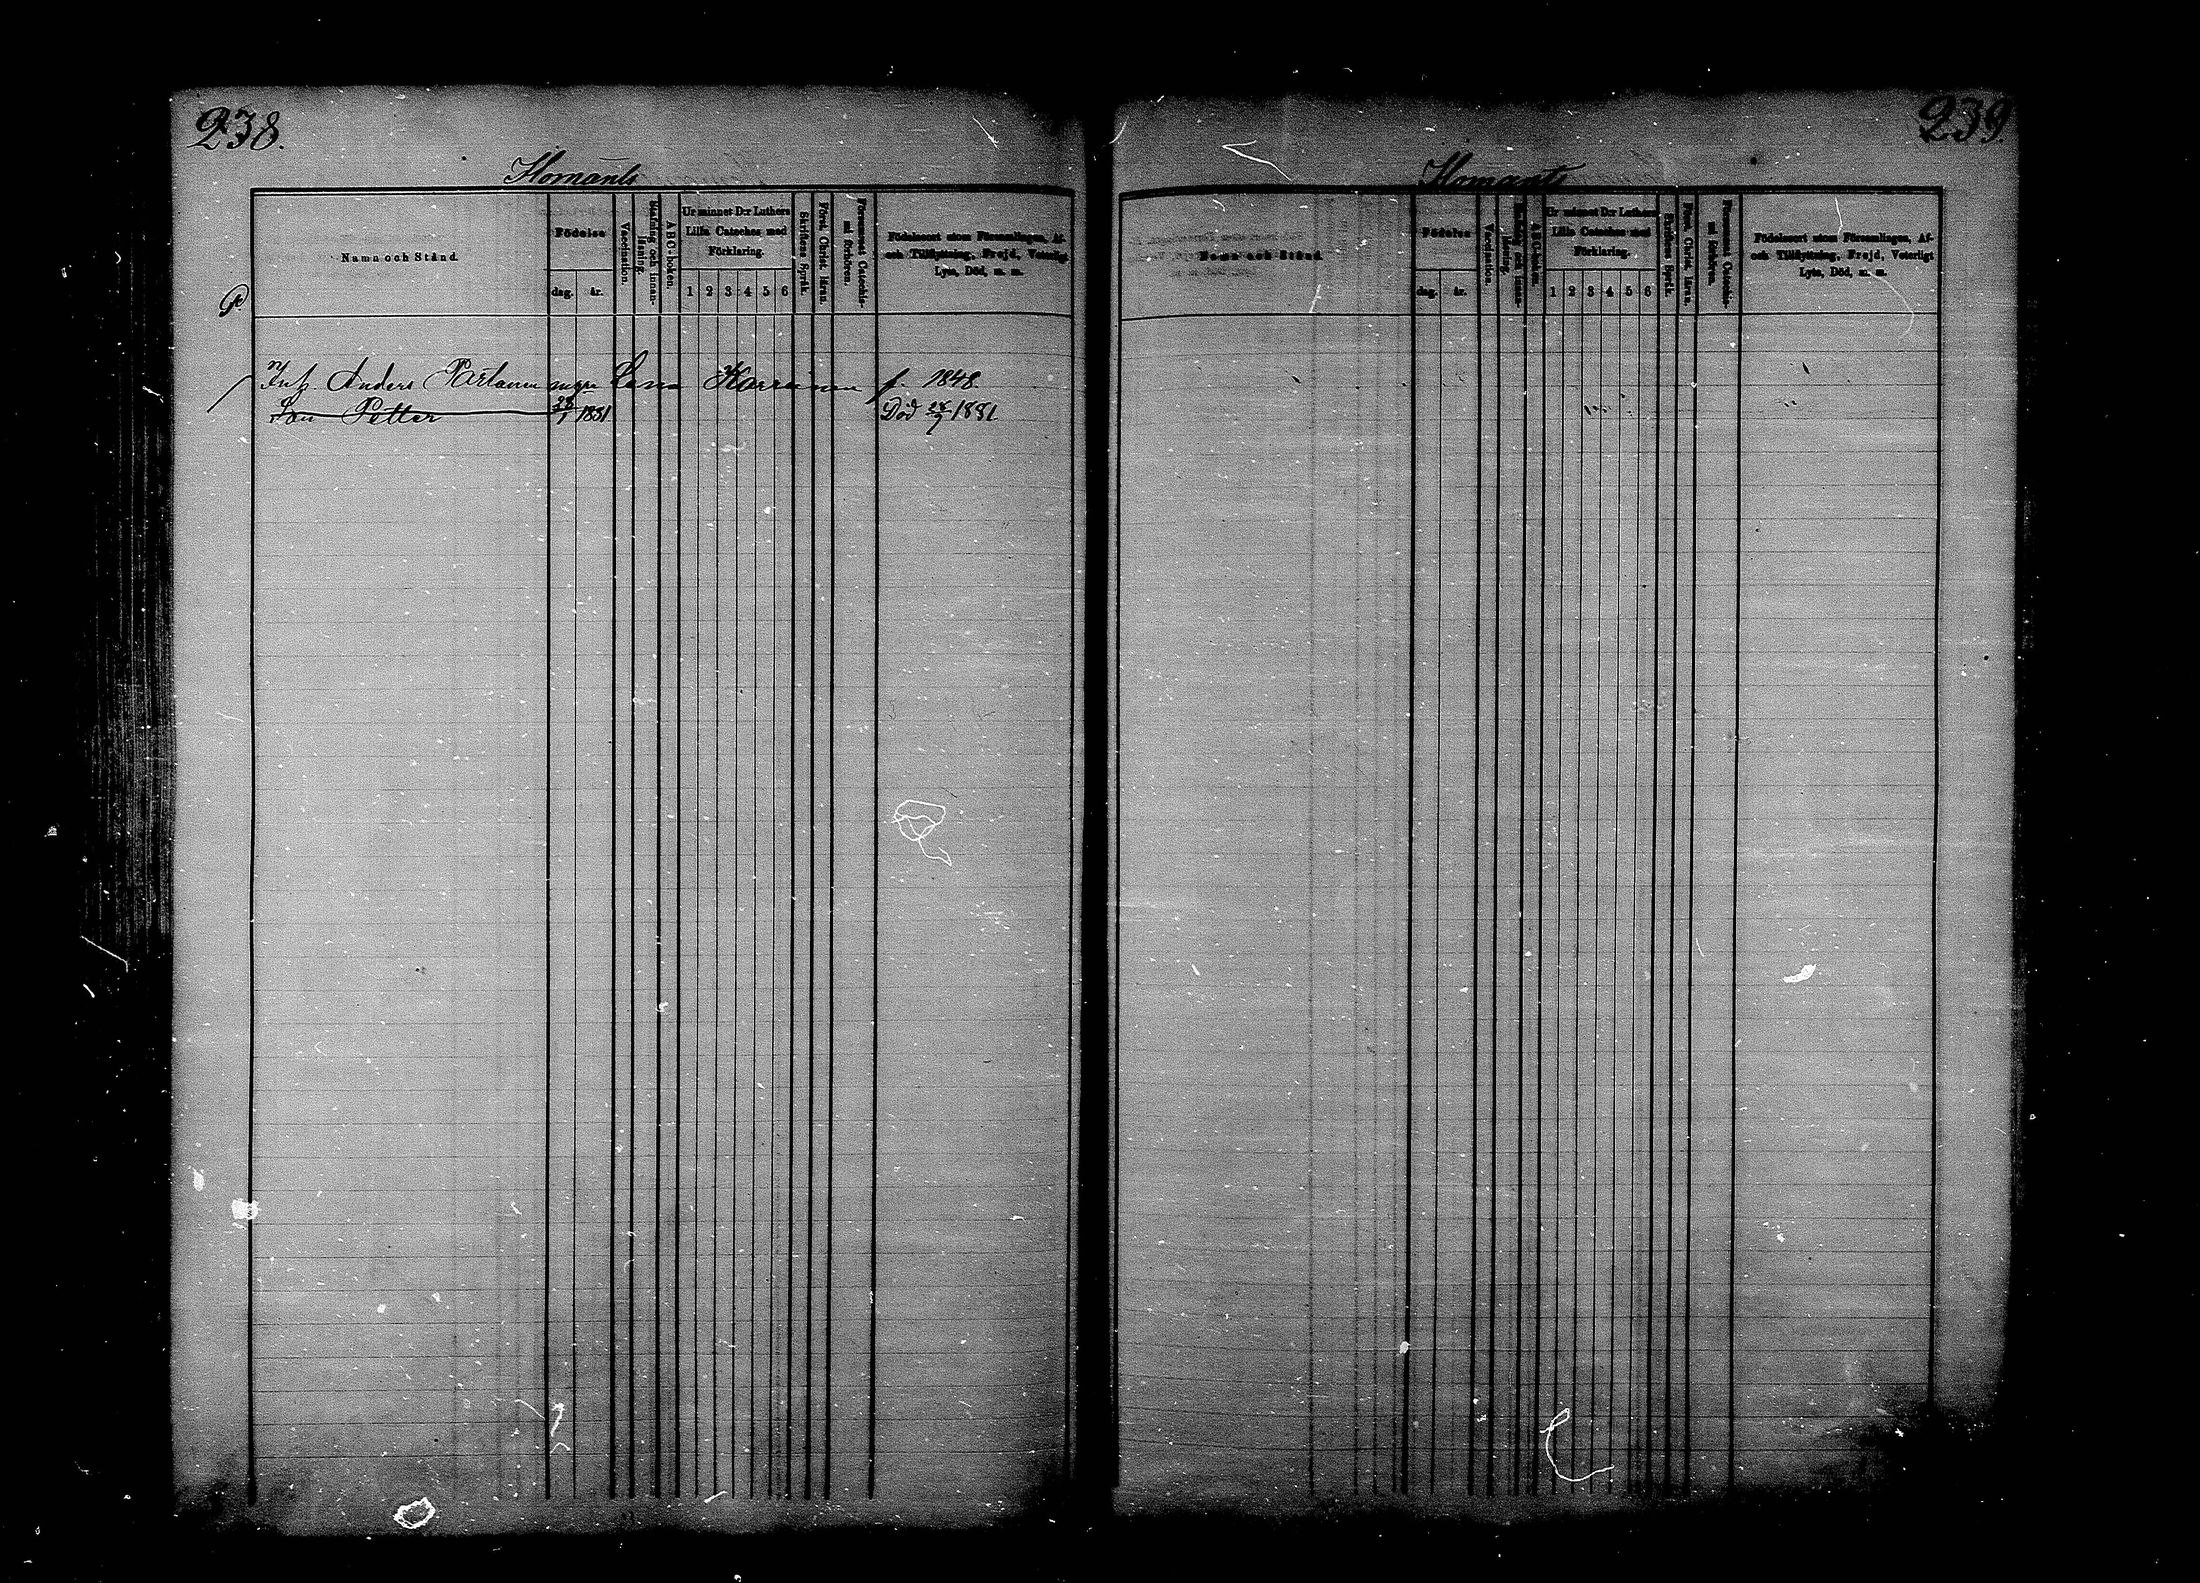 238.
Ilomants
Namn och Stånd.
Födelse
dag.
år.
Vaccination.
Stafning och innanläsning.
ABC-boken.
Ur minnet D:r Luthers
Lilla Cateches med
Förklaring.
1 2 3 4 5 6
Skriftens Språk.
Först. Christ. läran.
Försummat Catechismi förhören.
Födelseort utom Församlingen, Af-
och Tillflyttning, Frejd, Veterligt
Lyte, Död, m. m.
Anders Partanen Lena Karvinen f. 1848.
Jan Petter 28/1 1881 Död 1881
239.
Ilomants
Namn och Stånd.
Födelse
dag.
år.
Vaccination.
Stafning och innanläsning.
ABC-boken.
Ur minnet D:r Luthers
Lilla Cateches med
Förklaring.
1 2 3 4 5 6
Skriftens Språk.
Först. Christ. läran.
Försummat Catechismi förhören.
Födelseort utom Församlingen, Af-
och Tillflyttning, Frejd, Veterligt
Lyte, Död, m. m.